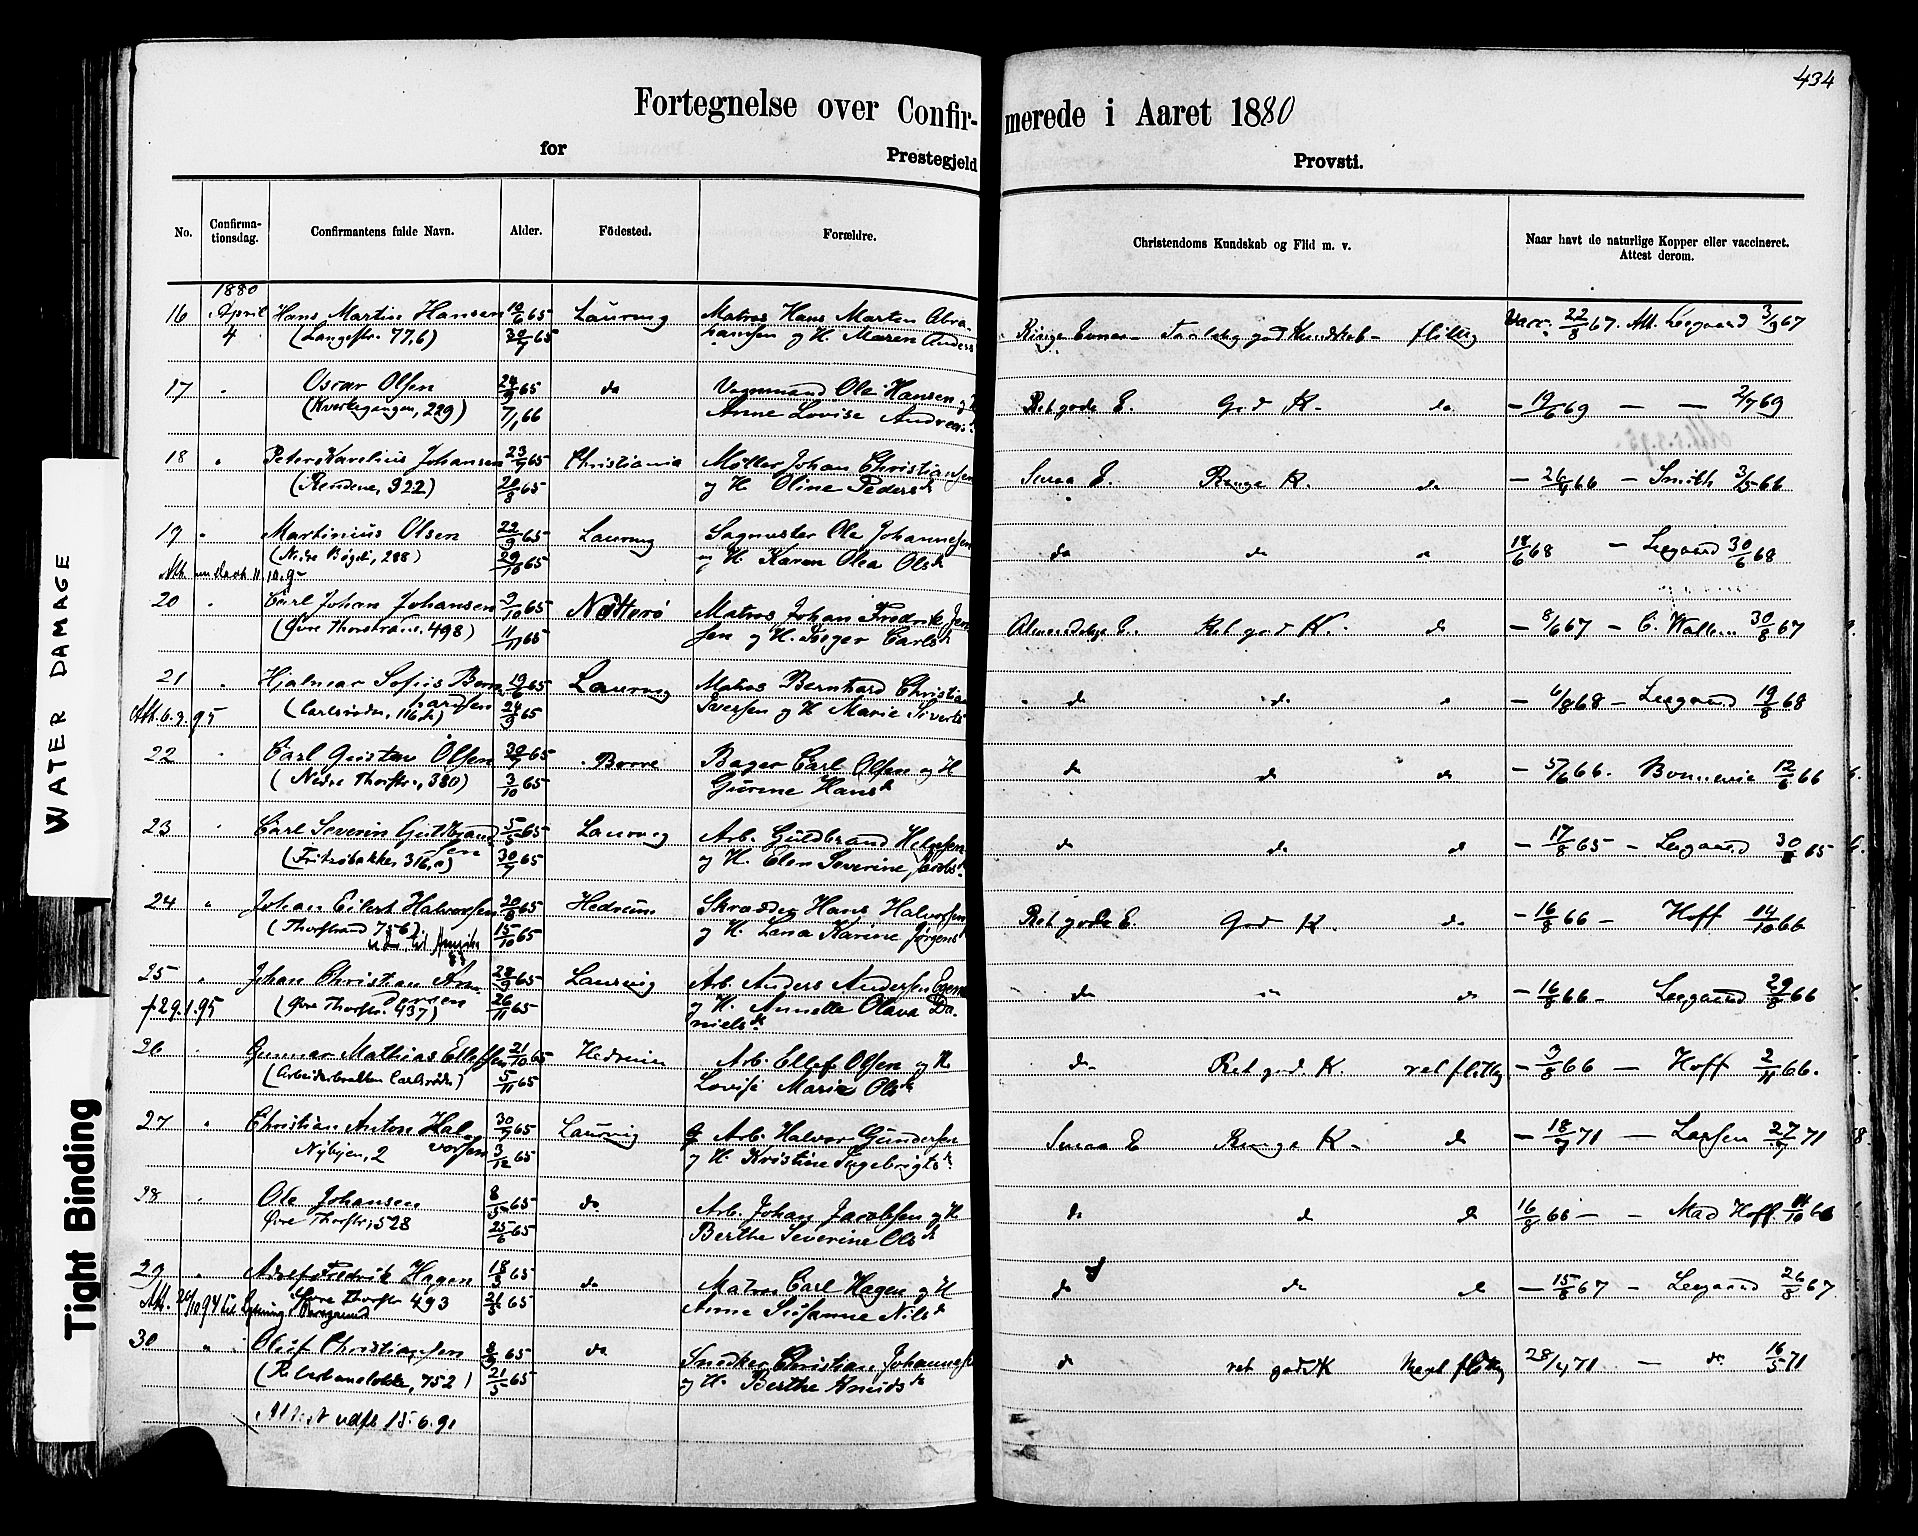 434
Fortegnelse over Confirmerede i Aaret 1880
for Prestegjeld Provsti.
No. Confirmationsdag. Confirmantens fulde Navn. Alder. Födested. Forældre. Christendoms Kundskab og Flid m. v. Naar havt de naturlige Kopper eller vaccineret. Attest derom.
1880
16 April Hans Martin Hansen 10/6 65 Laurvig Matros Hans Marten Abra-
4 (Langestr. 77,6) 30/7 65 hamsen og H. Maren Anders
Ringe Evner – Taalelig god Kundskab – flittig Vacc. 22/8 67. Att. Leegaard 3/9 67
17 " Oscar Olsen 24/9 65 do Vognmand Ole Hansen og H
(Kverkegangen, 229) 7/1 66 Anne Lovise Andreasd.
Ret gode E. God K. do – 19/6 69 – – 2/7 69
18 " Peter Karelius Johansen 23/7 65 Christiania Møller Johan Christiansen
(Rendene, 922) 20/8 65 og H Oline Pedersd.
Smaa E. Ringe K. do – 26/4 66 – Smith 3/5 66
19 " Martinius Olsen 22/9 65 Laurvig Sagmester Ole Johannesen
(Nedre Bøgeli, 288) 29/10 65 og H. Karen Olea Olsd.
do do do 18/6 68 – Leegaard 30/6 68
20 " Carl Johan Johansen 9/10 65 Nøtterø Matros Johan Fredrik Jen
(Øvre Thorstrand. 498) 11/11 65 sen og H. Inger Carlsd.
Almindelige E. Ret god K. do – 8/6 67 – C. Wallem 30/8 67
21 " Hjalmar Sofus Bern 19/6 65 Laurvig Matros Bernhard Christian
Att. 6.3.95 (Carlsrødn, 116 d) hardsen 24/9 65 Iversen og H Marie Sivertsd.
do do do – 6/8 68 – Leegaard 19/8 68
22 " Carl Gustav Olsen 30/7 65 Borre Bager Carl Olsen og H
(Nedre Thorstr., 380) 3/10 65 Gurine Hansd.
do do do – 5/6 66. Bonnevie 12/6 66
23 " Carl Severin Guldbrand 5/5 65 Laurvig Arb. Guldbrand Helgesen
sen
(Fritzøbakken 316,a) 30/7 65 og H. Elen Severine Jacobsd.
do do do – 17/8 65 – Leegaard 30/8 65
24 " Johan Eilert Halvorsen 20/8 65 Hedrum Skrædder Hans Halvorsen
(Thorstrand 756) 15/10 65 og H. Lena Karine Jørgensd.
Ret gode E. God K. do – 16/8 66 – Hoff 14/10 66
25 " Johan Christian An 28/9 65 Laurvig Arb. Anders Andersen Egene
dersen
† 29.1.95 (Øvre Thorstr. 437) 26/11 65 og H. Annette Olava Da
nielsd.
do " do – 16/8 66 – Leegaard 29/8 66
26 " Gunnar Mathias Ellefsen 21/10 65 Hedrum Arb. Ellef Olsen og H.
(Arbeiderboliten Carlsrødn) 5/11 65 Lovise Marie Olsd.
do Ret god. K. ret flittig – 3/8 66 – Hoff 2/11 66.
27 " Christian Anton Hal 30/9 65 Laurvig Arb. Halvor Gundersen
Nybyen, 2 vorsen 3/12 65 og H. Kristine Ingebrigtsd.
Smaa E Ringe K – do – 18/7 71 – Larsen 27/7 71
28 " Ole Johansen 8/5 65 do Arb. Johan Jacobsen og H
Øvre Thorstr, 528 25/6 65 Berthe Severine Olsd.
do do do 16/8 66 – – Mad Hoff. 14/10 66
29 " Adolf Fredrik Hagen 18/3 65 do Matros Carl Hagen og H
Øvre Thorstr 493 21/5 65 Anne Susanne Nilsd.
do do do – 15/8 67 – Leegaard 26/8 67
30 " Oluf Christiansen 8/3 65 do Snedker Christian Johannesen
(Reberbaneløkke, 752) 21/5 65 og H. Berthe Knudsd.
do ret god K Meget flittig 28/4 71 – do 16/5 71
Attest udfr 15.6.91
WATER DAMAGE
Tight Binding